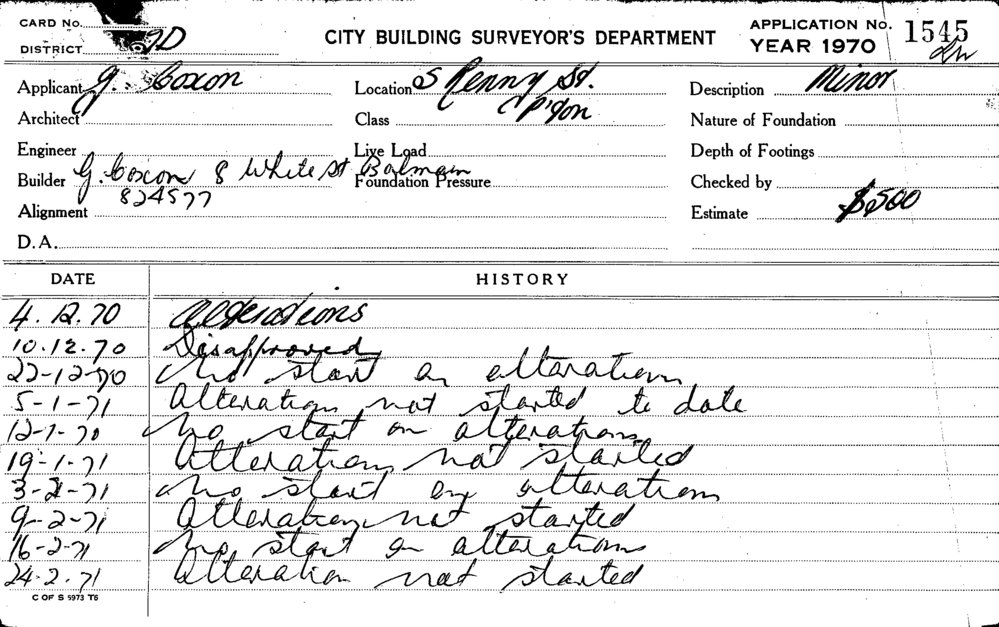 CARD No.
DISTRICT D
CITY BUILDING SURVEYOR'S DEPARTMENT
APPLICATION No. 1545
YEAR 1970
Applicant G. Coxon
Location Renny St.
Description Minor
Architect
Class P'gon
Nature of Foundation
Engineer
Live Load
Depth of Footings
Builder G. Coxon 8 White St Balmain
Foundation Pressure
Checked by
824577
Alignment
Estimate $500
D.A.
DATE HISTORY
4.12.70 Alterations
10.12.70 Disapproved
22-12-70 No start on alterations
5-1-71 Alteration not started to date
12-1-70 No start on alterations
19-1-71 Alteration not started
3-2-71 No start on alterations
9-2-71 Alteration not started
16-2-71 No start on alterations
24.2.71 Alteration not started
C OF S 5973 T6